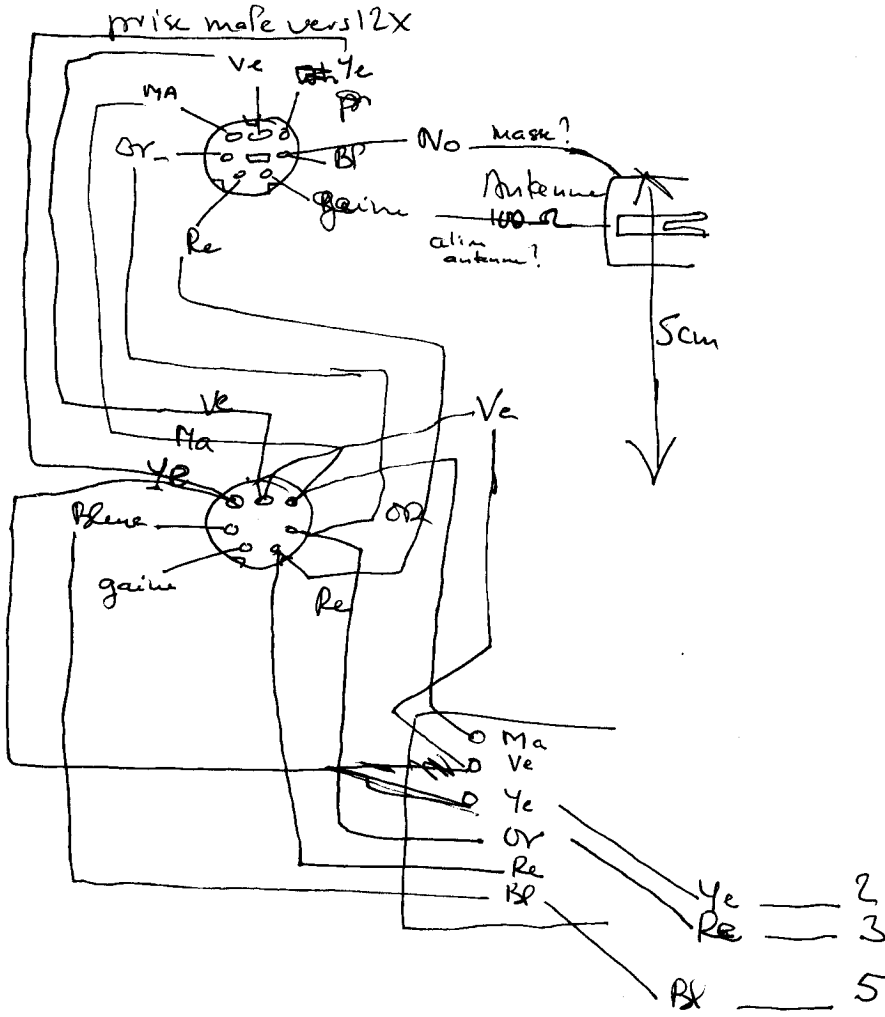 prise male vers 12X
Ve
Ye
MA
Or
Bl
No
mask?
Antenne
100 Ω
alim
antenne?
gaine
Re
5cm
Ve
Ve
Ma
Ye
Bleue
OR
gaine
Re
Ma
Ve
Ye
Or
Re
Bl
Ye 2
Re 3
Bl 5